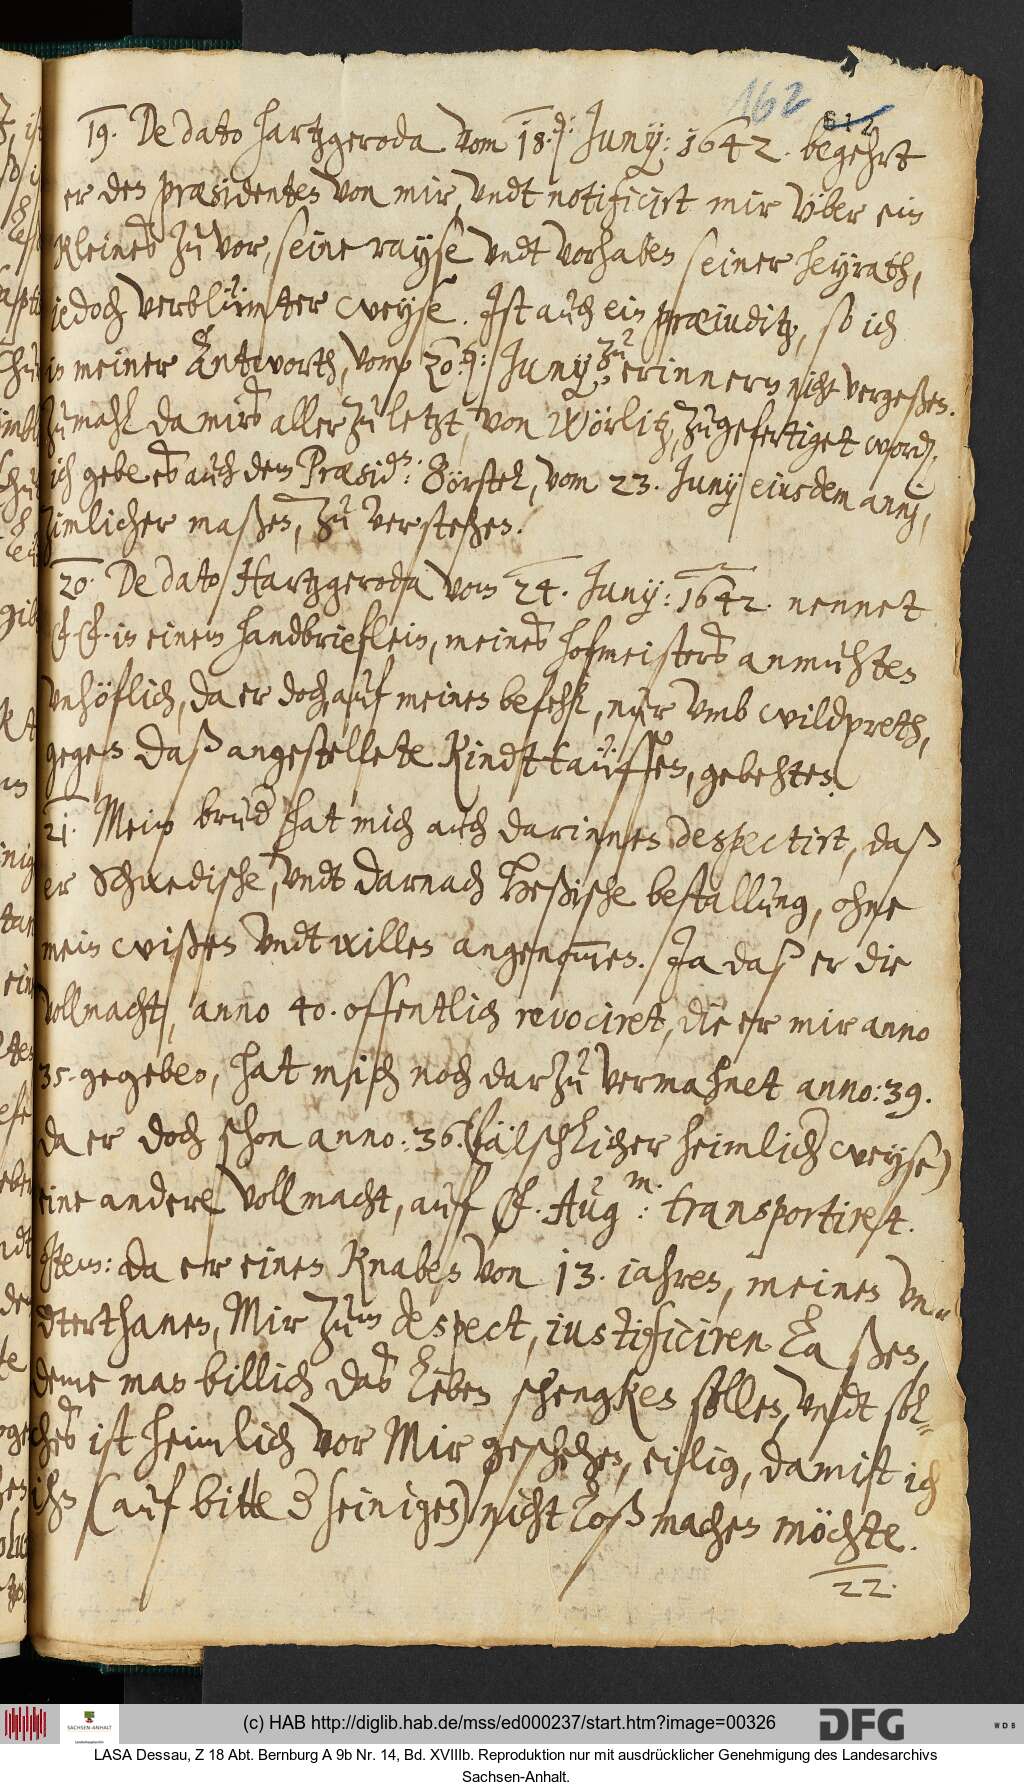 162
612
19. De dato hartzgeroda vom 18.d: Juny: 1642. begehrt
er den præsidenten von mir, vndt notificirt mir vber ein
Kleines zu vor, seine rayse vndt vorhaben seiner heyrath,
iedoch verblümter weyse. Jst auch ein præiuditz, so ich
in meiner Antworth, vom 20.d: Juny, zu erinnern nicht vergeßen.
Zumahl da mirs aller zu letzt, von Wörlitz, zugefertiget word.
ich gebe es auch dem Præsid: Börstel, vom 23. Juny eiusdem anny,
zimlicher maßen, zu verstehen.
20. De dato Hartzgeroda vom 24. Juny: 1642. nennet
F. F. in einem handbrieflein, meines hofmeisters anmuhten
vnhöflich, da er doch auf meinen befehl, nur vmb wildpreth,
gegen daß angestellete Kindttäuffen, gebehten.
21. Mein brud hat mich auch darinnen despectirt, daß
er Schwedische, vndt darnach Heßische bestallung, ohne
mein wißen vndt willen angenom̅en. Ja daß er die
Vollmacht, anno 40. offentlich revociret, die er mir anno
35. gegeben, hat mich noch darzu vermahnet anno: 39.
da er doch schon anno: 36. (fälschlicher heimlich weyse)
eine andere Vollmacht, auf F. Aug m: transportiret.
Jtem: da er einen Knaben von 13. iahren, meinen vn¬
dterthanen, Mir zum despect, iustificiren laßen,
deme man billich das leben schengken sollen, vndt sol¬
ches ist heimlich vor Mir geschehen, eilig, damitt ich
ihn (auf bitte d seinigen) nicht loß machen möchte.
22.
(c) HAB http://diglib.hab.de/mss/ed000237/start.htm?image=00326
SACHSEN-ANHALT
DFG
WDB
LASA Dessau, Z 18 Abt. Bernburg A 9b Nr. 14, Bd. XVIIIb. Reproduktion nur mit ausdrücklicher Genehmigung des Landesarchivs
Sachsen-Anhalt.